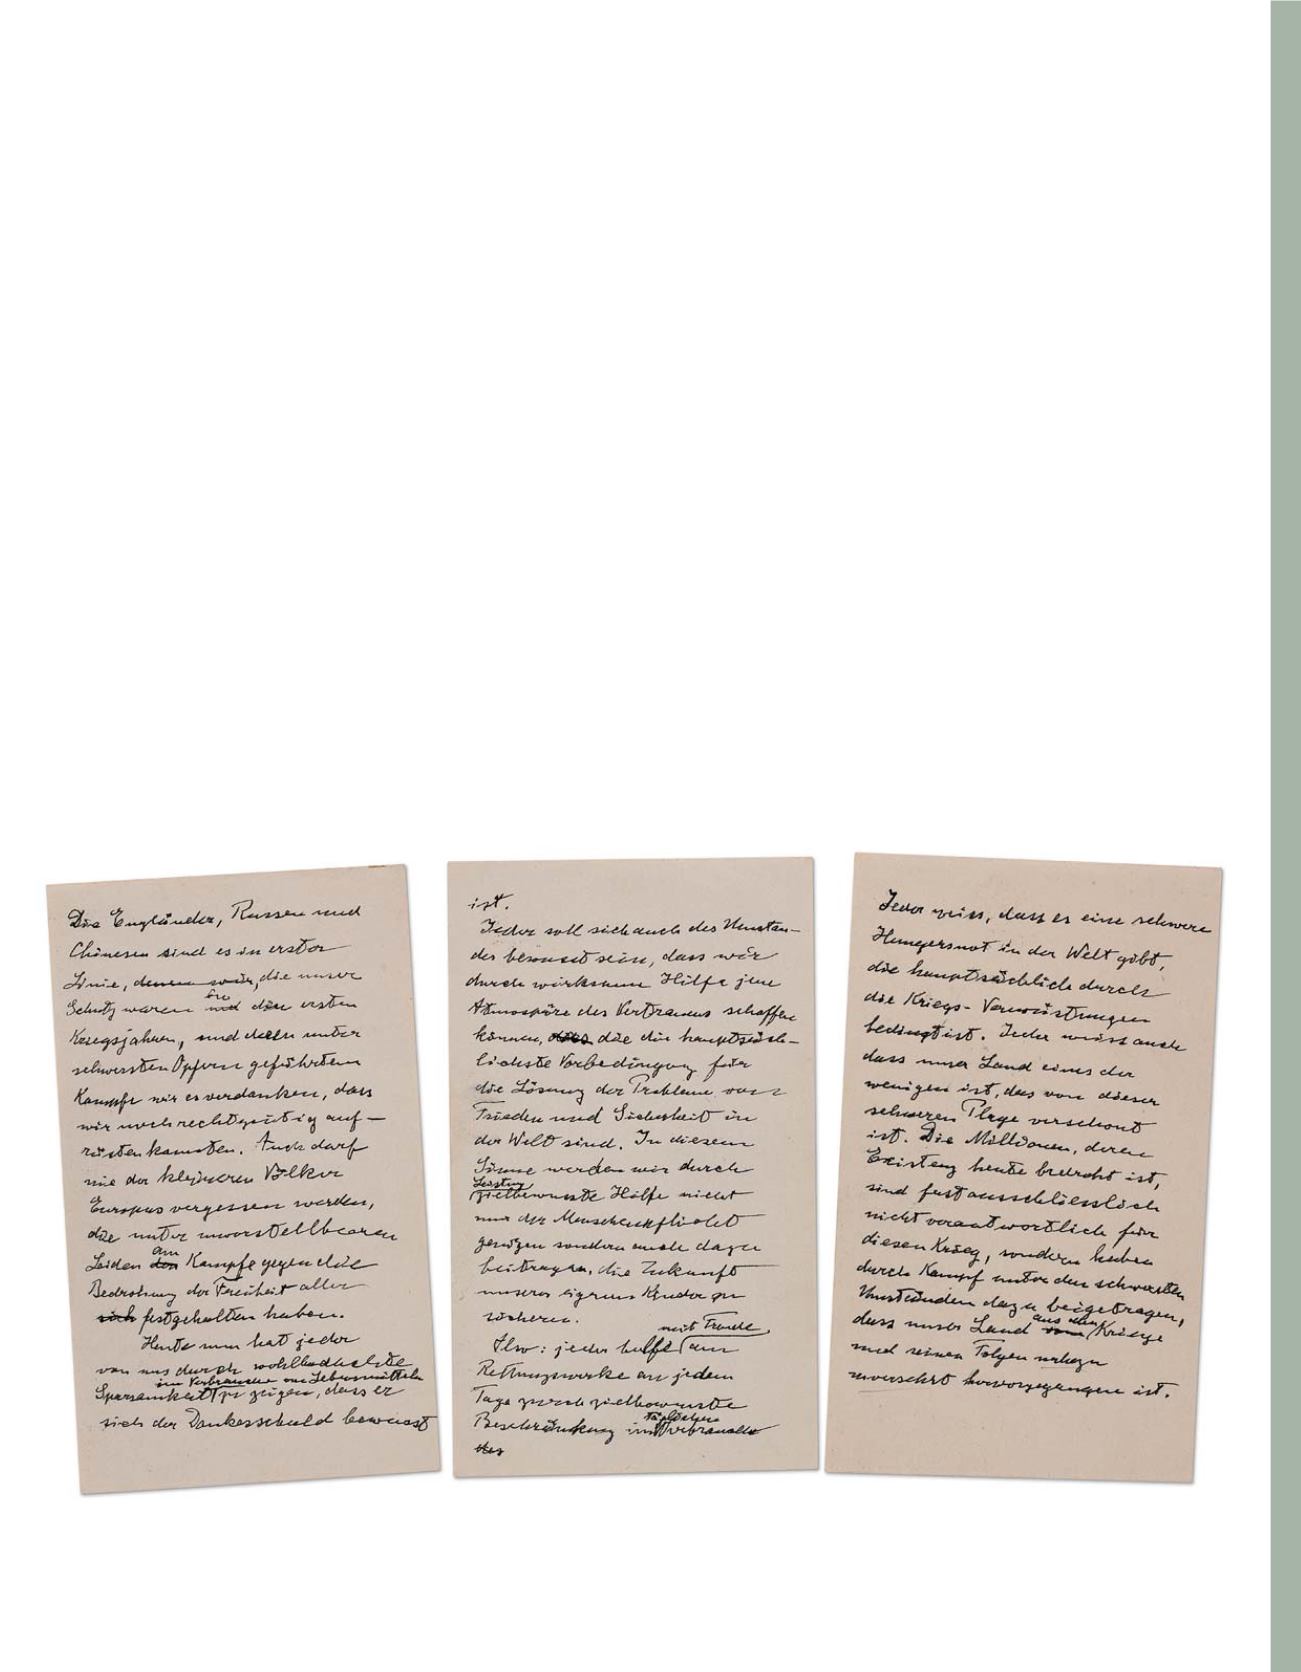 Die Engländer, Russen und
Chinesen sind es in erster
Linie, denen wir, die unser
Schutz waren in den ersten
Kriegsjahren, und deren unter
schwersten Opfern geführtem
Kampfe wir es verdanken, dass
wir noch rechtzeitig auf-
rüsten konnten. Auch darf
nie der kleineren Völker
Europas vergessen werden,
die unter unvorstellbaren
Leiden am Kampfe gegen die
Bedrohung der Freiheit aller
sich festgehalten haben.
Heute nun hat jeder
von uns durch wohlbedachte
im Verbrauche von Lebensmitteln
Sparsamkeit zu zeigen, dass er
sich der Dankesschuld bewusst
ist.
Jeder soll sich auch des Umstan-
des bewusst sein, dass wir
durch wirksame Hilfe jene
Atmospäre des Vertrauens schaffen
können, die die hauptsäch-
lichste Vorbedingung für
die Lösung der Probleme von
Frieden und Sicherheit in
der Welt sind. In diesem
Sinne werden wir durch
zielbewusste Hilfe nicht
nur der Menschenpflicht
genügen sondern auch dazu
beitragen, die Zukunft
unserer eigenen Kinder zu
sichern.
mit Freude
Also: jeder helfe am
Rettungswerke an jedem
Tage durch zielbewusste
täglichen
Beschränkung im Verbrauche
des
Jeder weiss, dass es eine schwere
Hungersnot in der Welt gibt,
die hauptsächlich durch
die Kriegs-Verwüstungen
bedingt ist. Jeder weiss auch
dass unser Land eines der
wenigen ist, das von dieser
schweren Plage verschont
ist. Die Millionen, deren
Existenz heute bedroht ist,
sind fast ausschliesslich
nicht verantwortlich für
diesen Krieg, sondern haben
durch Kampf unter den schwersten
Umständen dazu beigetragen,
aus dem
dass unser Land Kriege
und seinen Folgen nahezu
unversehrt hervorgegangen ist.